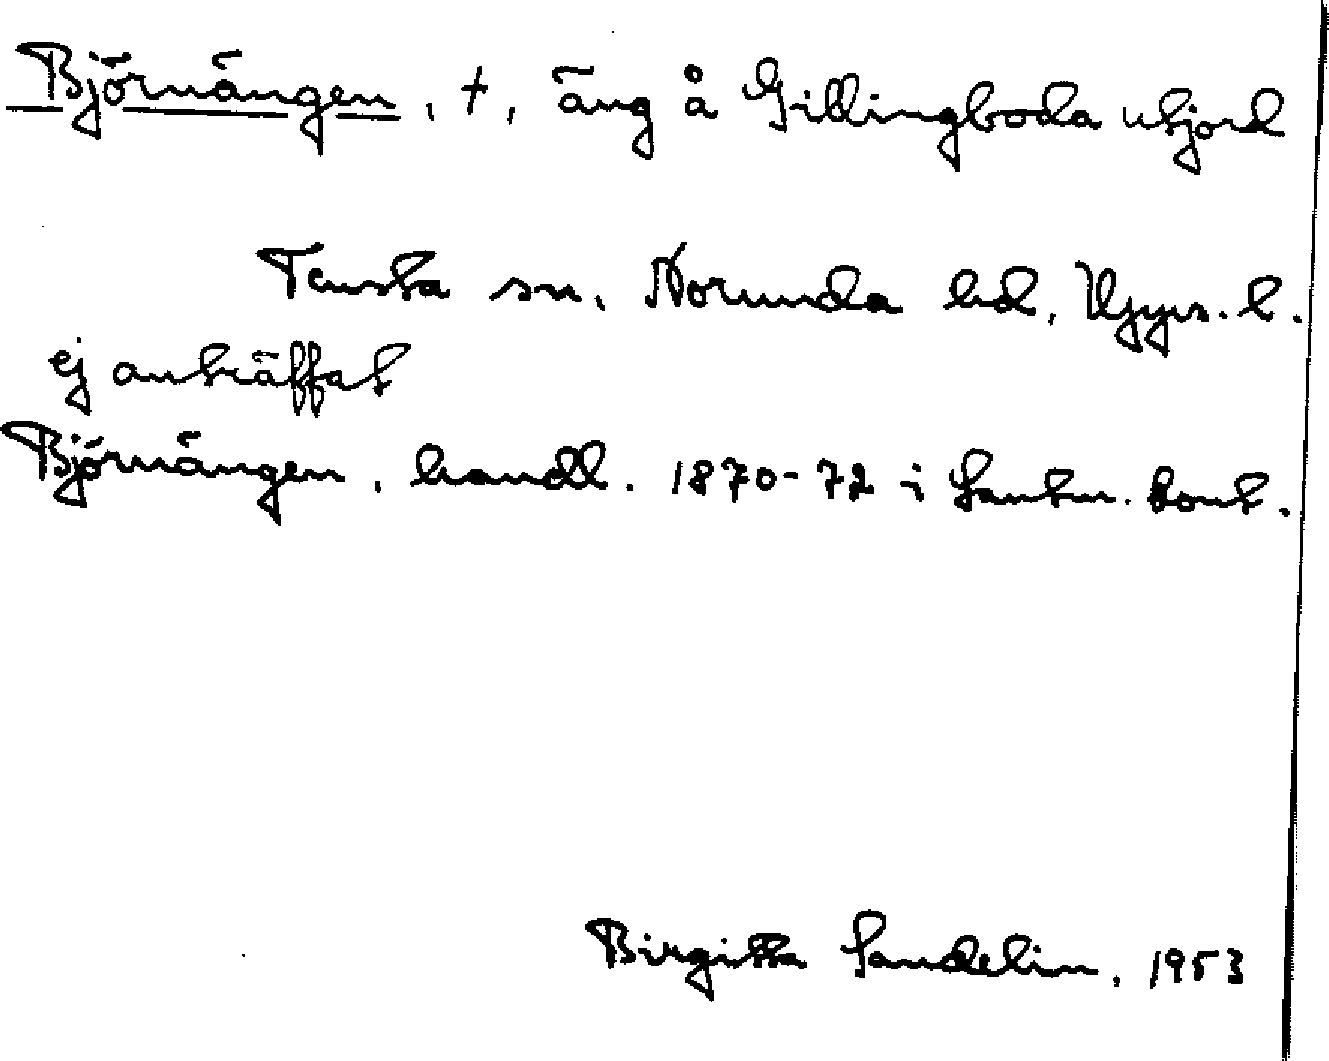 Björnängen, †, äng å Gillingboda utjord
Tensta sn, Norunda hd, Upps. l.
ej anträffat
Björnängen, handl. 1870-72 i Lantm. kont.
Birgitta Sandelin, 1953